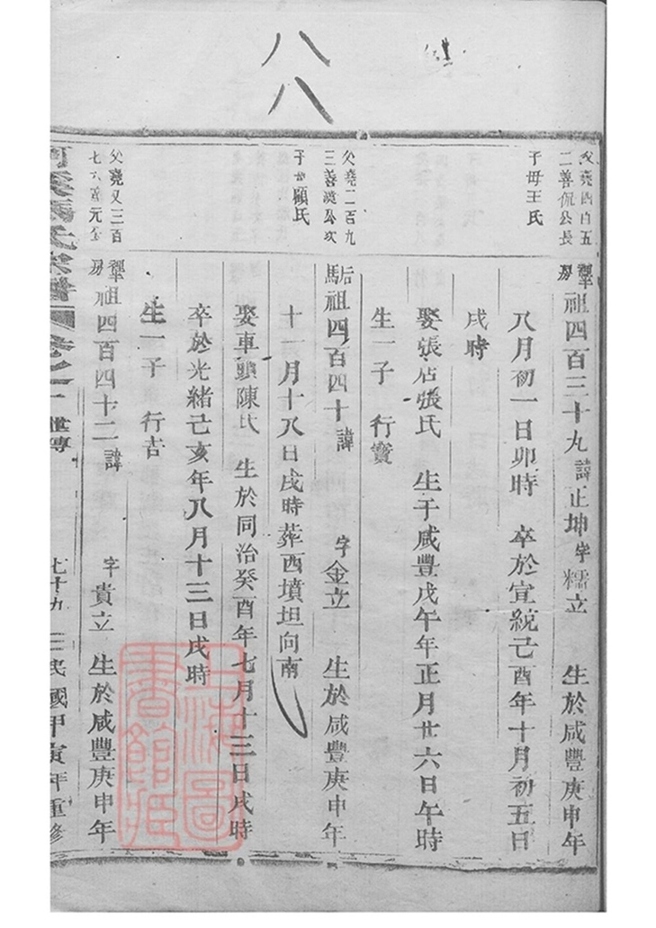 八八
父堯四百五
二善侃公長
子母王氏
房
祖四百三十九 諱正坤 字糯立 生於咸豐庚申年
八月初一日卯時 卒於宣統己酉年十月初五日
戌時
娶張店張氏 生于咸豐戊午年正月廿六日午時
生一子 行寶
父堯二百九
三善 公次
子母顧氏
后
駱祖四百四十 諱 字金立 生於咸豐庚申年
十一月十八日戌時葬西墳坦向南
娶車頭陳氏 生於同治癸酉年七月十三日戌時
卒於光緒己亥年八月十三日戌時
生一子 行吉
父堯又三百
七六 元公
房
祖四百四十二 諱 字貴立 生於咸豐庚申年
氏宗譜 卷之一 世傳 七十九 民國甲寅年重修
上海圖書館藏